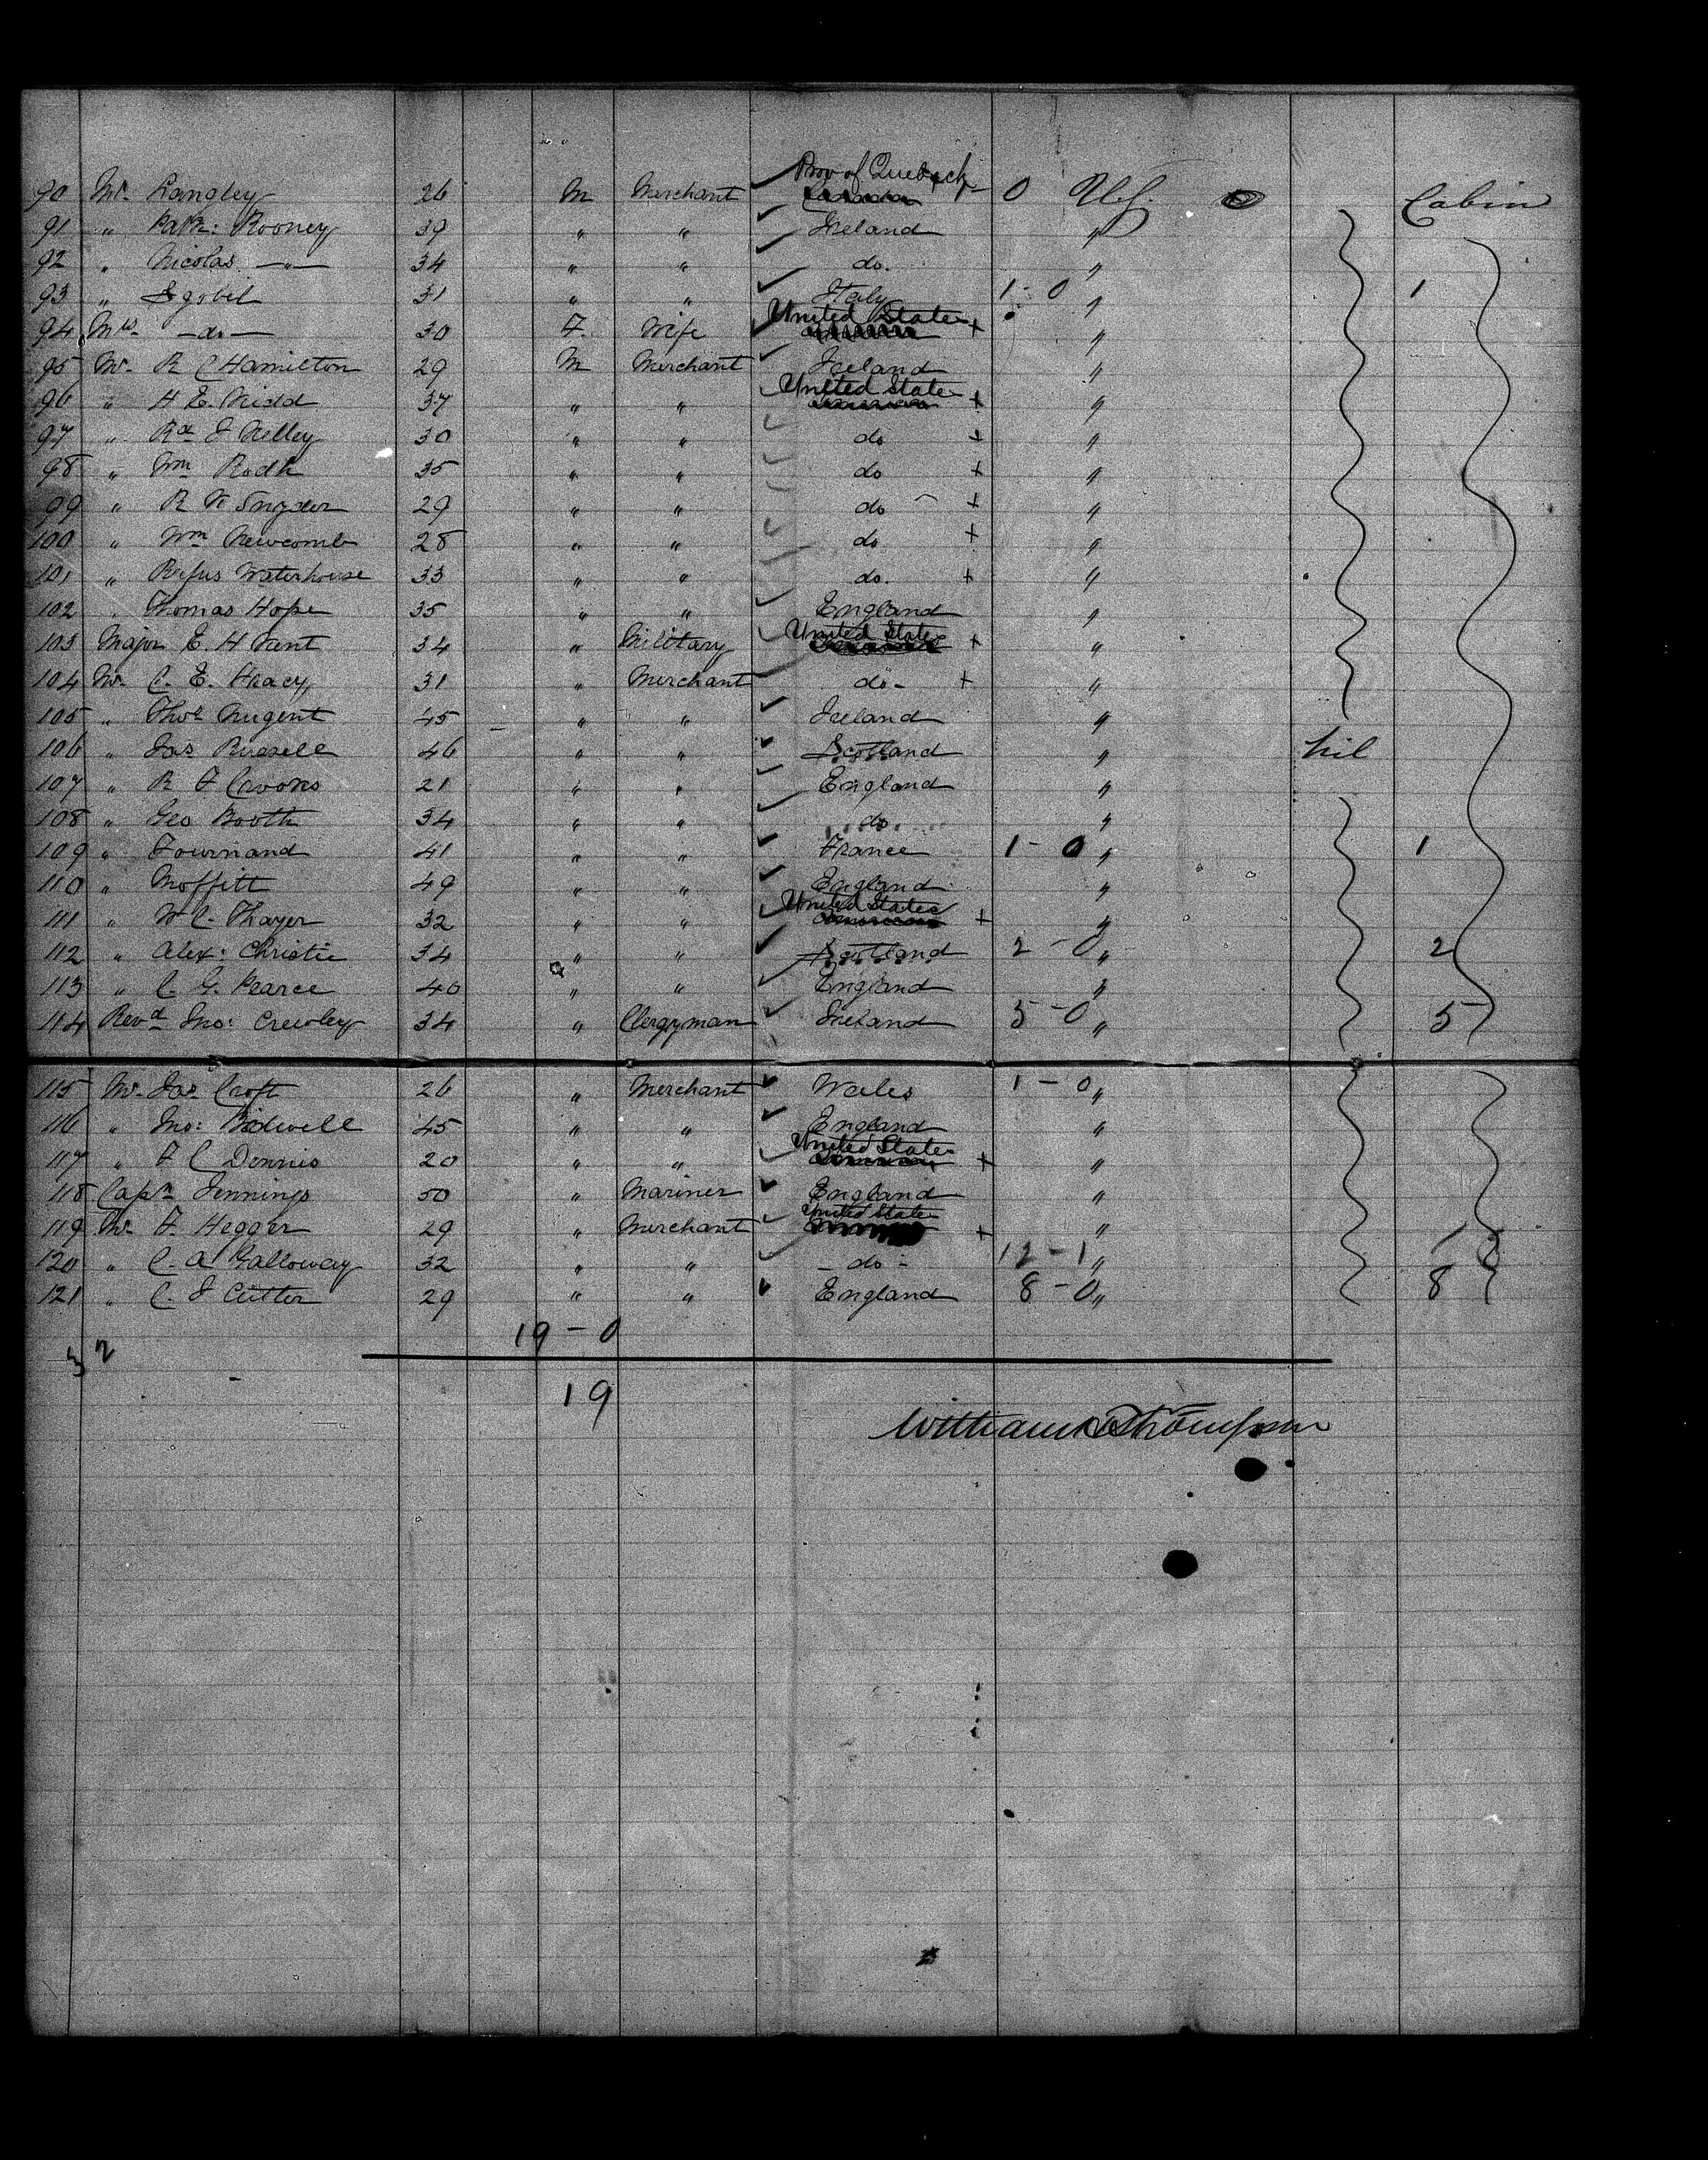 Prov of Quebeck
90 Mr. Langley 26 M Merchant ✓ + 0 U.S. 0 Cabin
91 " Patk: Rooney 39 " " ✓ Ireland "
92 " Nicolas —"— 34 " " ✓ do. "
93 " Sgobel 31 " " ✓ Italy 1-0 " 1
94 Mrs. —do— 30 F. Wife ✓ United States + "
95 Mr. R C Hamilton 29 M Merchant ✓ Ireland "
96 " H E. Kidd 37 " " ✓ United States + "
97 " Rd J Kelley 30 " " ✓ do + "
98 " Wm Rodh 35 " " ✓ do + "
99 " R W Snyder 29 " " ✓ do + "
100 " Wm Newcomb 28 " " ✓ do + "
101 " Rufus Waterhouse 33 " " ✓ do. + "
102 " Thomas Hope 35 " " ✓ England "
103 Major E. H Kent 34 " Military ✓ United States + "
104 Mr. C. E. 31 " Merchant ✓ do- + "
105 " Thos Nugent 45 " " ✓ Ireland "
106 " Jas Russell 46 " " ✓ Scotland " Nil
107 " R F Crooks 21 " " ✓ England "
108 " Geo Booth 34 " " ✓ do. "
109 " Fournand 41 " " ✓ France 1-0 " 1
110 " Moffitt 49 " " ✓ England "
111 " W C. Thayer 32 " " ✓ United States + "
112 " Alex: Christie 34 " " ✓ Scotland 2-0 " 2
113 " C. G. Pearce 40 " " ✓ England "
114 Revd Jno: Crowley 34 " Clergyman ✓ Ireland 5-0 " 5
115 Mr. Jas Croft 26 " Merchant ✓ Wales 1-0 "
116 " Jno: Bidwell 45 " " ✓ England "
117 " F C Dennis 20 " " ✓ United States + "
118 Captn Jennings 50 " Mariner ✓ England "
119 Mr. F. Hegger 29 " Merchant ✓ United States + "
120 " C. A Galloway 32 " " ✓ - do - 12-1 "
121 " C. J Cutter 29 " " ✓ England 8-0 " 8
19-0
32
19
William Thompson